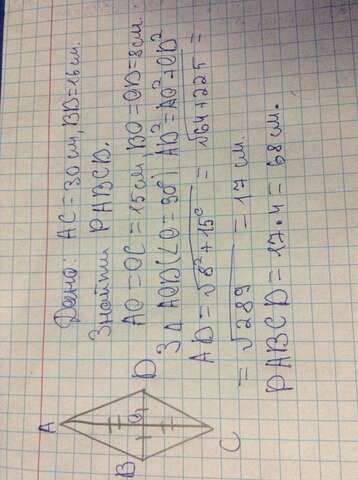 Дано: AC = 30 см, BD = 16 см.
Знайти PABCD.
AO = OC = 15 см, BO = OD = 8 см
З Δ AOD (∠O = 90°) AD² = AO² + OD²
AD = √8² + 15² = √64 + 225 =
= √289 = 17 см
PABCD = 17 · 4 = 68 см.
A
B
O
D
C